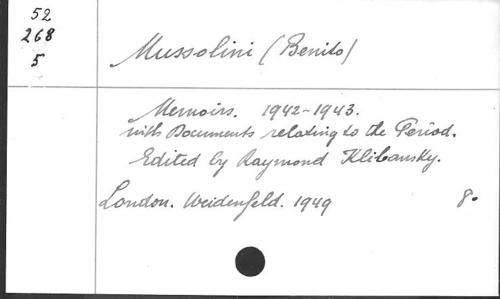 52
268
5
Mussolini (Benito)
Memoirs. 1942-1943.
with Documents relating to the Period.
Edited by Raymond Klibansky.
London. Weidenfeld. 1949 8.